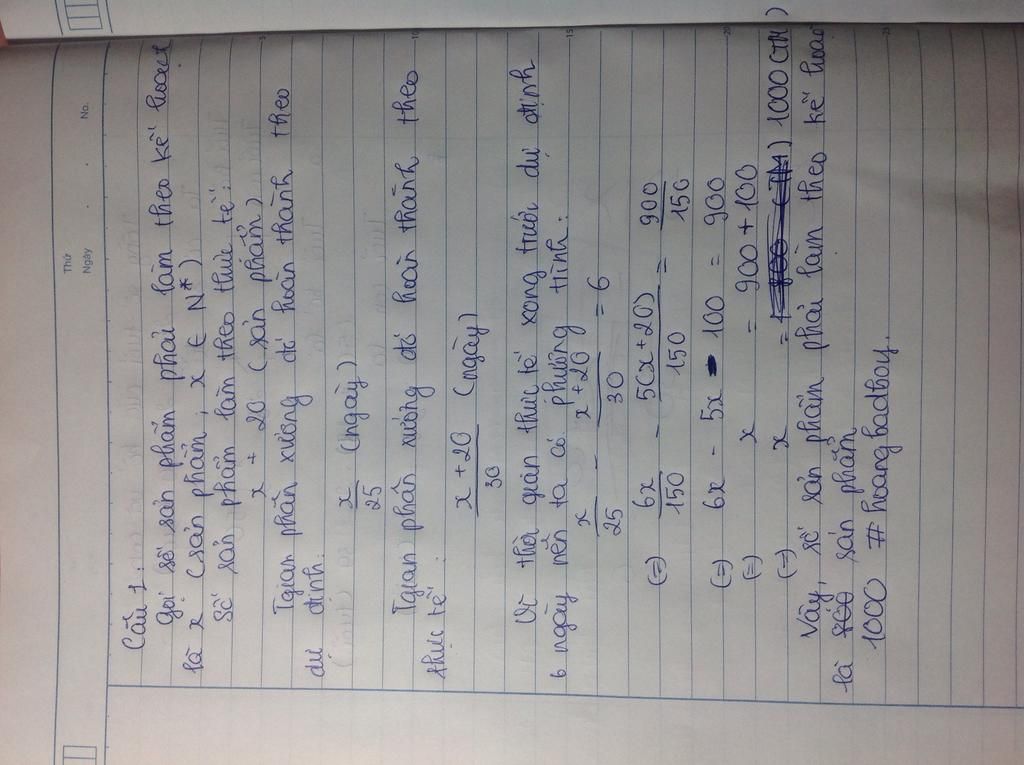 Thứ
Ngày
No.
5
10
15
20
25
Câu 1:
Gọi số sản phẩm phải làm theo kế hoạch
là x (sản phẩm; x ∈ N*)
Số sản phẩm làm theo thực tế:
x + 20 (sản phẩm)
Tgian phân xưởng đó hoàn thành theo
dự định:
x/25 (ngày)
Tgian phân xưởng đó hoàn thành theo
thực tế:
x + 20/30 (ngày)
Vì thời gian thực tế xong trước dự định
6 ngày nên ta có phương trình:
x/25 - x + 20/30 = 6
(=) 6x/150 - 5(x + 20)/150 = 900/150
(=) 6x - 5x - 100 = 900
(=) x = 900 + 100
(=) x = 1000 (TM)
Vậy, số sản phẩm phải làm theo kế hoạ
là sản phẩm
1000 # hoangbadboy.